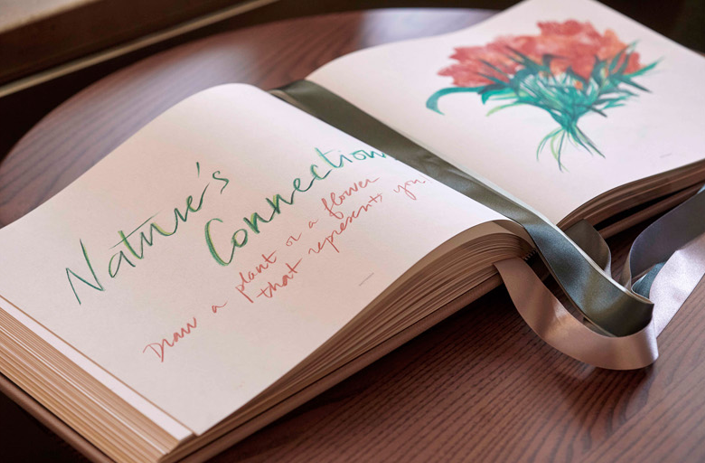 Nature's
Connection
Draw a plant or a flower
that represents you.